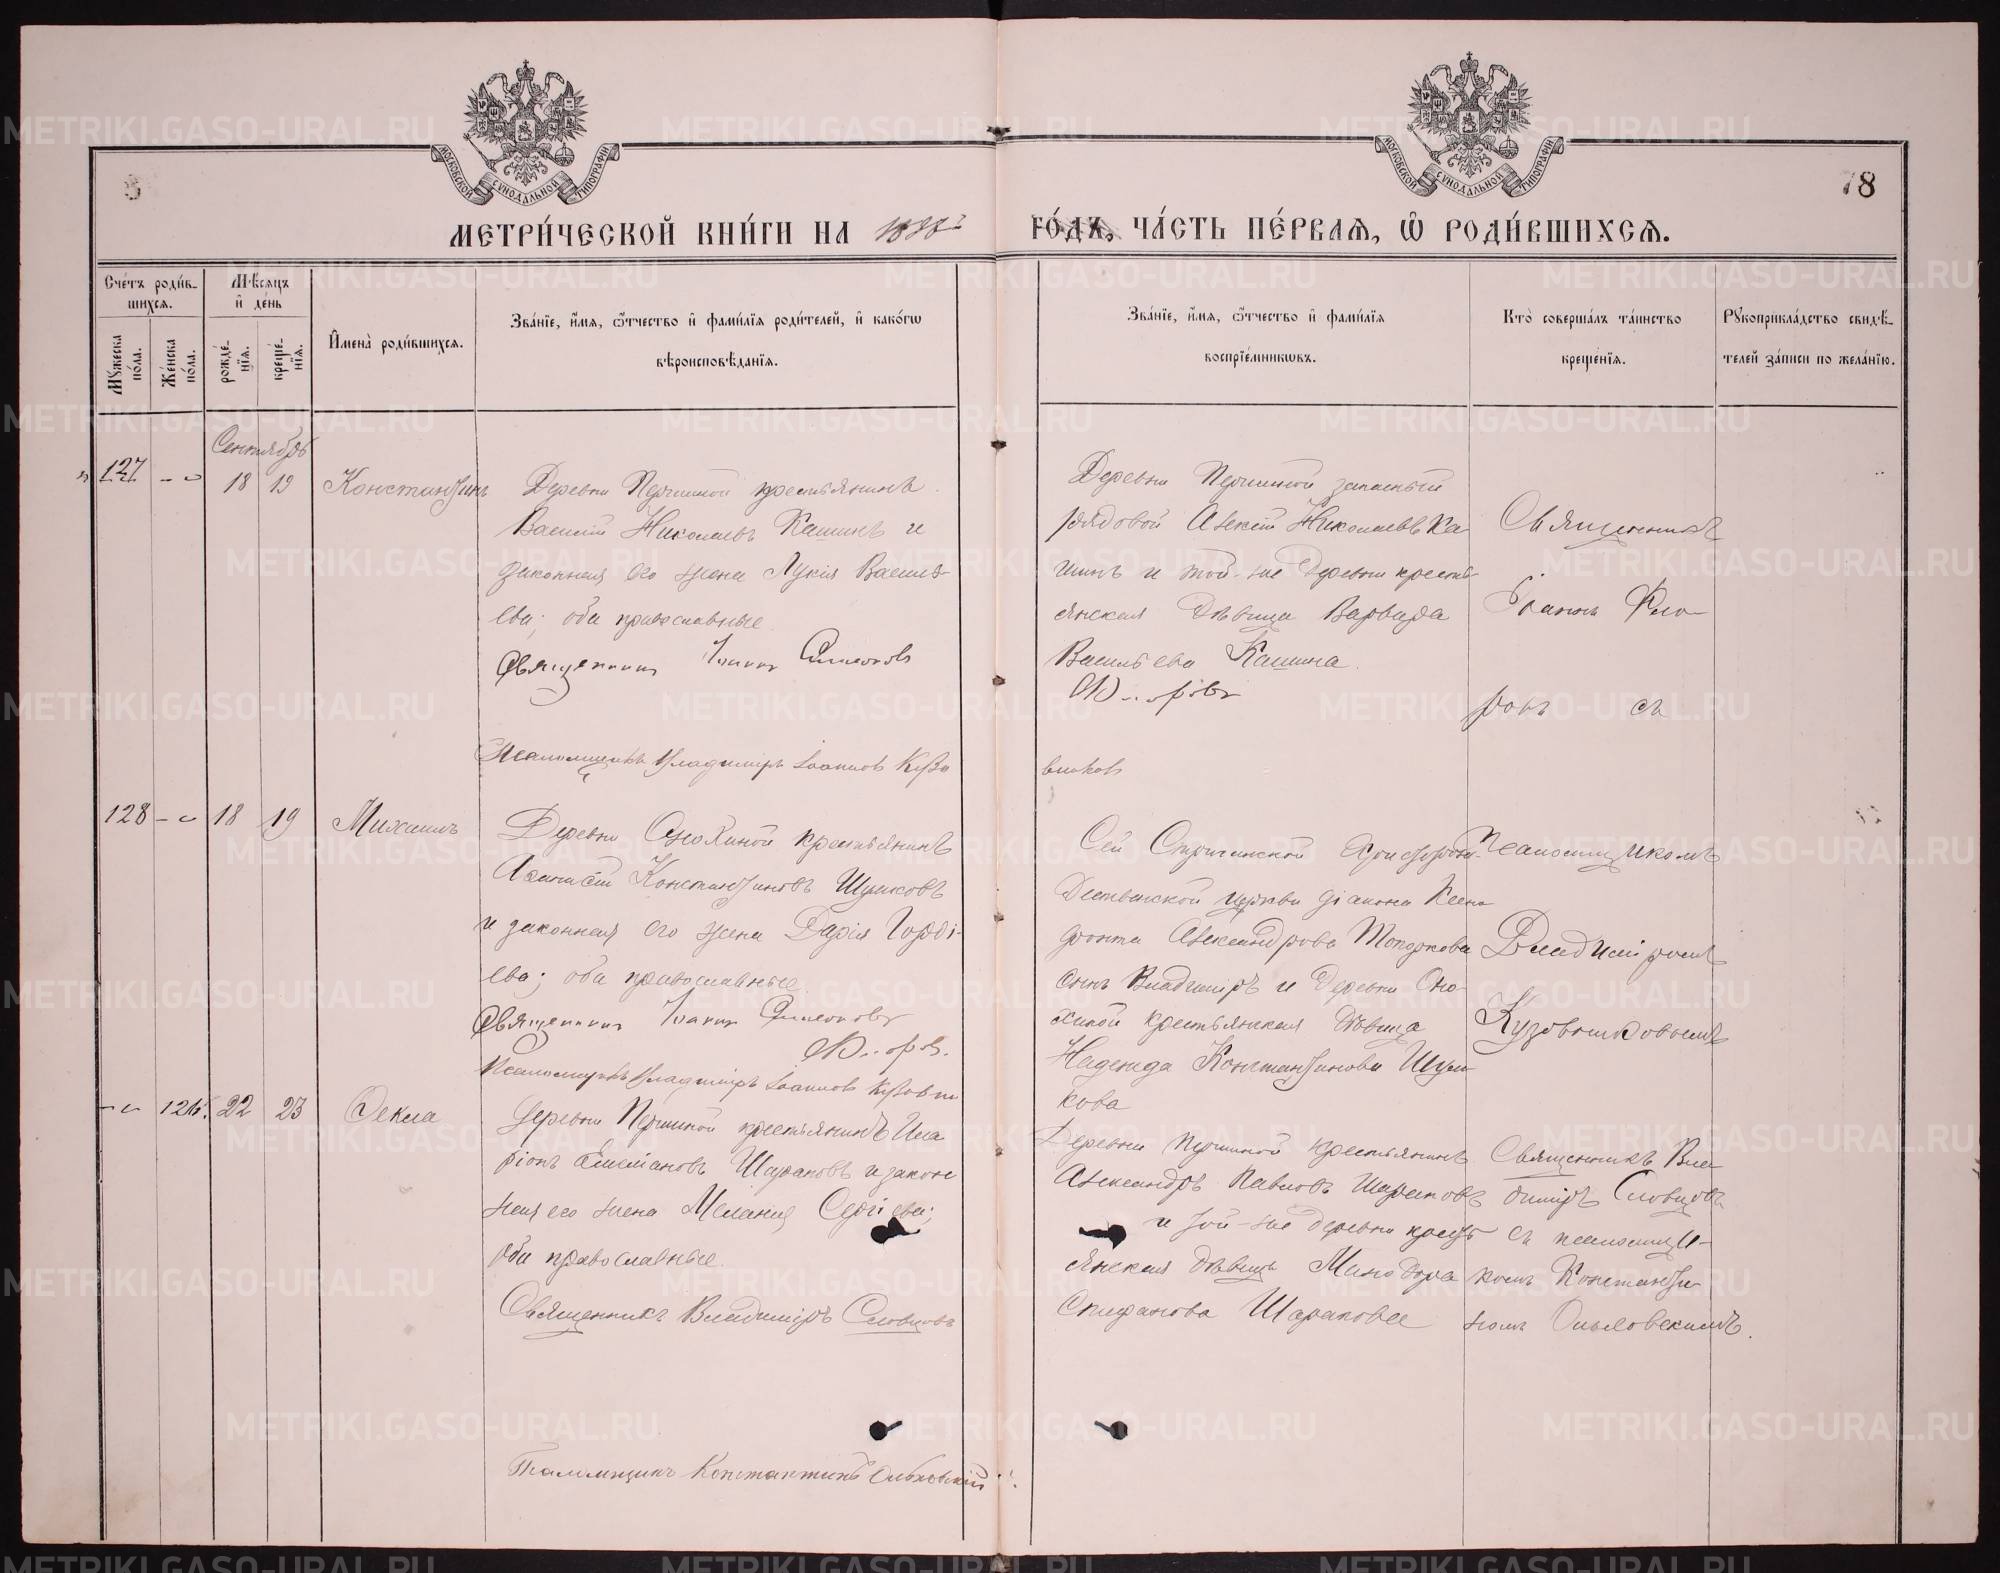 МОСКОВСКОЙ СУНОДАЛЬНОЙ ТИПОГРАФІИ
МОСКОВСКОЙ СУНОДАЛЬНОЙ ТИПОГРАФІИ
78
МЕТРИ́ЧЕСКОЙ КНИ́ГИ НА
ГО́ДЪ, ЧА́СТЬ ПЕ́РВАѦ, Ѡ РОДИ́ВШИХСѦ.
Сче́тъ роди́в-
шихсѧ.
Мѣ́сѧцъ
и҆ де́нь
Мꙋ́жеска по́ла.
Же́нска по́ла.
рожде́-
нїѧ.
креще́-
нїѧ.
И҆мена̀ роди́вшихсѧ.
Зва́нїе, и҆́мѧ, ѻ҆́тчество и҆ фами́лїѧ роди́телей, и҆ како́гѡ
вѣроисповѣ́данїѧ.
Зва́нїе, и҆́мѧ, ѻ҆́тчество и҆ фами́лїѧ
воспрїе́мникѡвъ.
Кто̀ соверша́лъ та́инство
креще́нїѧ.
Рꙋкоприкла́дство свидѣ́-
телей за́писи по жела́нїю.
Сентябрь
127
18 19
Константинъ
Деревни Першиной крестьянинъ
Василій Николаевъ Кашинъ и
законная его жена Лукія Василь-
ева; оба православные
Священникъ Іоаннъ Симеоновъ
Псаломщикъ Владиміръ Іоанновъ Кузо
Деревни Першиной запасный
рядовой Алексій Николаевъ Ка
шинъ и той-же деревни кресть
янская дѣвица Варвара
Васильева Кашина.
Священникъ
Іоаннъ Фло-
ровъ съ
128
18 19
Михаилъ
Деревни Онохиной крестьянинъ
Аѳанасій Константиновъ Шумковъ
и законная его жена Дарія Горді-
ева; оба православные.
Священникъ Іоаннъ Симеоновъ
Псаломщикъ Владиміръ Іоанновъ
Сей Стриганской Христорож-
дественской церкви діакона Ксено
фонта Александрова Топоркова
сынъ Владиміръ и деревни Оно-
хиной крестьянская дѣвица
Надежда Константинова Шум
кова
Псаломщикомъ
Владиміромъ
Кузовниковымъ
126. 22 23
Ѳекла
Деревни Першиной крестьянинъ Ила
ріонъ Шараповъ и закон
ная его жена Меланія Сергіева;
оба православные.
Священникъ Владиміръ Словцовъ
Псаломщикъ Константинъ
Деревни Першиной крестьянинъ
Александръ Павловъ Шараповъ
и той-же деревни крест
янская дѣвица Минодора
Стефанова Шарапова
Священникъ Вла
диміръ Словцовъ
съ псаломщи-
комъ Константи
номъ